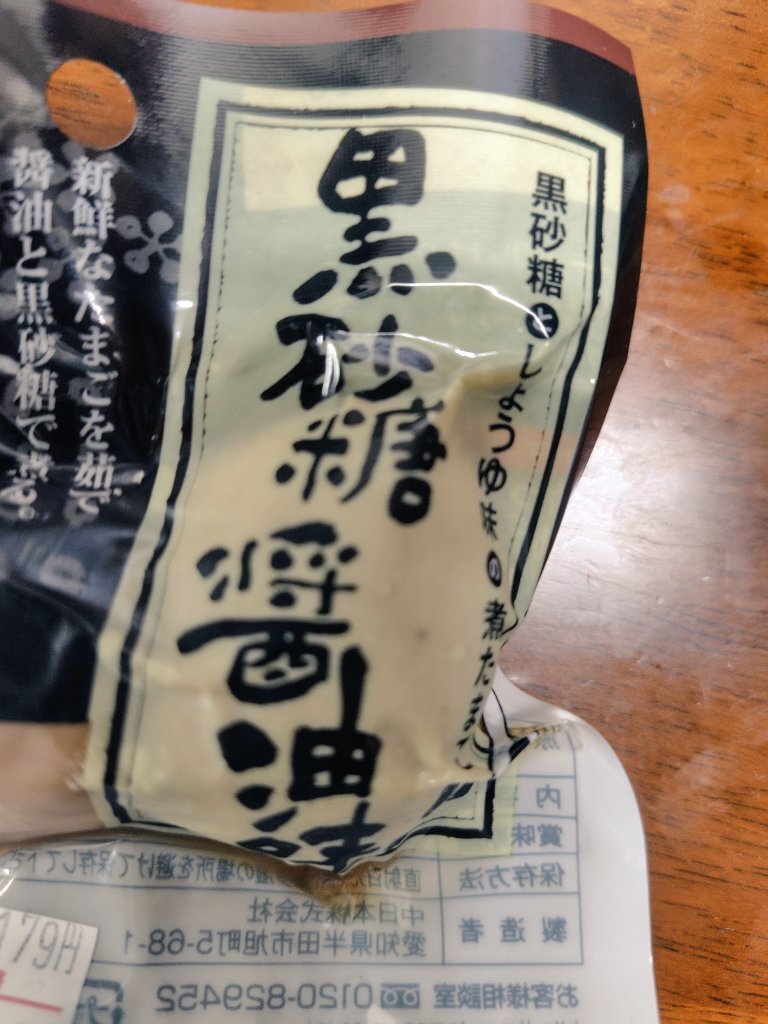 黒砂糖としょうゆ味の煮たまご
黒砂糖
醤油
新鮮なたまごを茹で
醤油と黒砂糖で煮る。
内
賞味
保存方法
製造者
中日本株式会社
愛知県半田市旭町5-68-1
お客様相談室 0120-829452
179円